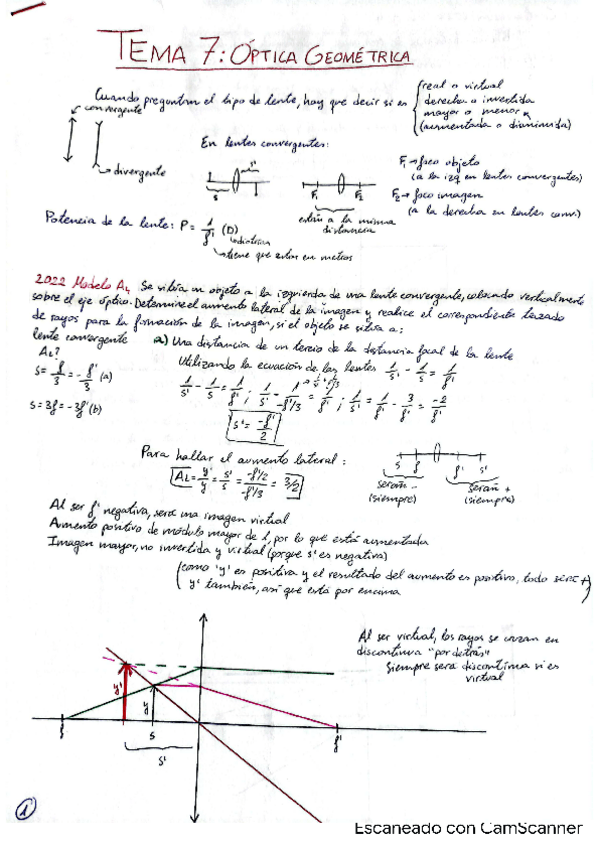 TEMA 7: ÓPTICA GEOMÉTRICA
Cuando preguntan el tipo de lente, hay que decir si es
real o virtual
derecha o invertida
mayor o menor
(aumentada o disminuida)
convergente
divergente
En lentes convergentes:
s'
s
F₁ F₂
están a la misma
distancia
F₁→foco objeto
(a la izq en lentes convergentes)
F₂→foco imagen
(a la derecha en lentes conv.)
Potencia de la lente: P = 1/f' (D)
dioptrías
tiene que estar en metros
2022 Modelo A4 Se sitúa un objeto a la izquierda de una lente convergente, colocado verticalmente
sobre el eje óptico. Determine el aumento lateral de la imagen y realice el correspondiente trazado
de rayos para la formación de la imagen, si el objeto se sitúa a:
lente convergente
AL?
s = f/3 = -f'/3 (a)
s = 3f = -3f' (b)
a) Una distancia de un tercio de la distancia focal de la lente
Utilizando la ecuación de las lentes 1/s' - 1/s = 1/f'
1/s' - 1/s = 1/f' ; 1/s' - 1/-f'/3 = 1/f' ; 1/s' = 1/f' - 3/f' = -2/f'
s' = -f'/2
Para hallar el aumento lateral:
AL = y'/y = s'/s = -f'/2/-f'/3 = 3/2
s f f' s'
serán -
(siempre)
serán +
(siempre)
Al ser f' negativa, será una imagen virtual
Aumento positivo de módulo mayor de 1, por lo que está aumentada
Imagen mayor, no invertida y virtual (porque s' es negativa)
(como 'y' es positiva y el resultado del aumento es positivo, todo será +)
y' también, así que está por encima
Al ser virtual, los rayos se cruzan en
discontinua "por detrás"
Siempre será discontinua si es
virtual
y'
y
f s f'
s'
1
Escaneado con CamScanner